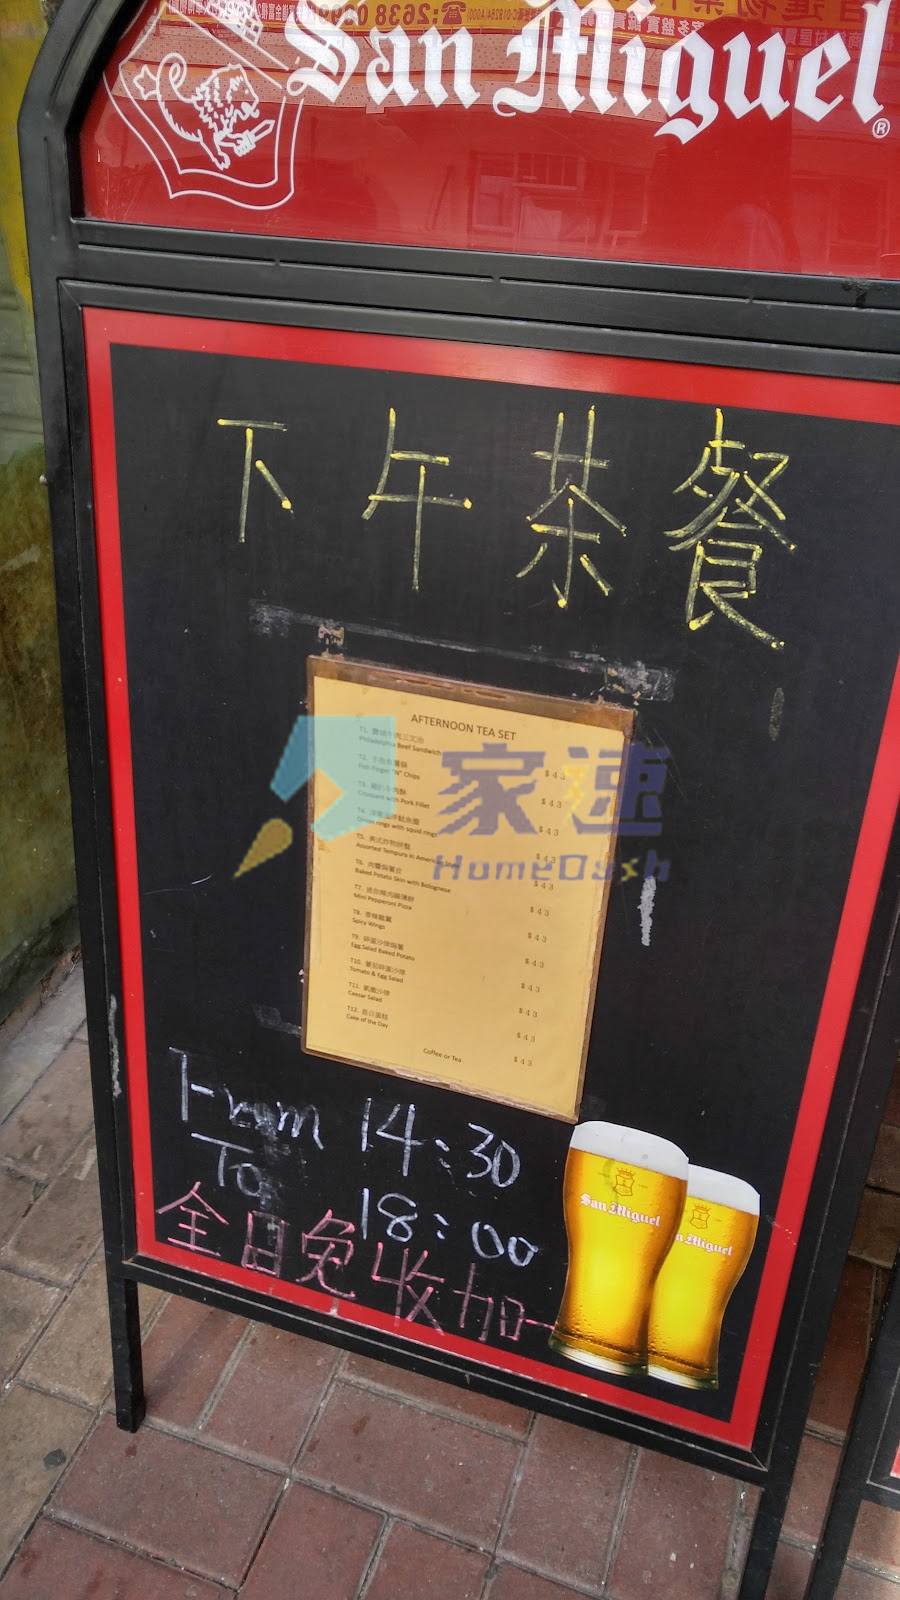 San Miguel
®
下午茶餐
AFTERNOON TEA SET
Philadelphia Beef Sandwich
$43
T2.
Fish Finger "N" Chips
$43
T3.
Croissant with Pork Fillet
$43
T4.
Onion rings with squid rings
$43
T5. 美式炸物拼盤
Assorted Tempura in American Style
$43
T6.
Baked Potato Skin with Bolognese
$43
T7.
Mini Pepperoni Pizza
$43
T8. 香辣雞翼
Spicy Wings
$43
T9.
Egg Salad Baked Potato
$43
T10. 蕃茄碎蛋沙律
Tomato & Egg Salad
$43
T11. 凱撒沙律
Caesar Salad
$43
T12. 是日蛋糕
Cake of the Day
$43
Coffee or Tea
家速
HomeDash
From 14:30
To 18:00
全日免收加一
San Miguel
San Miguel